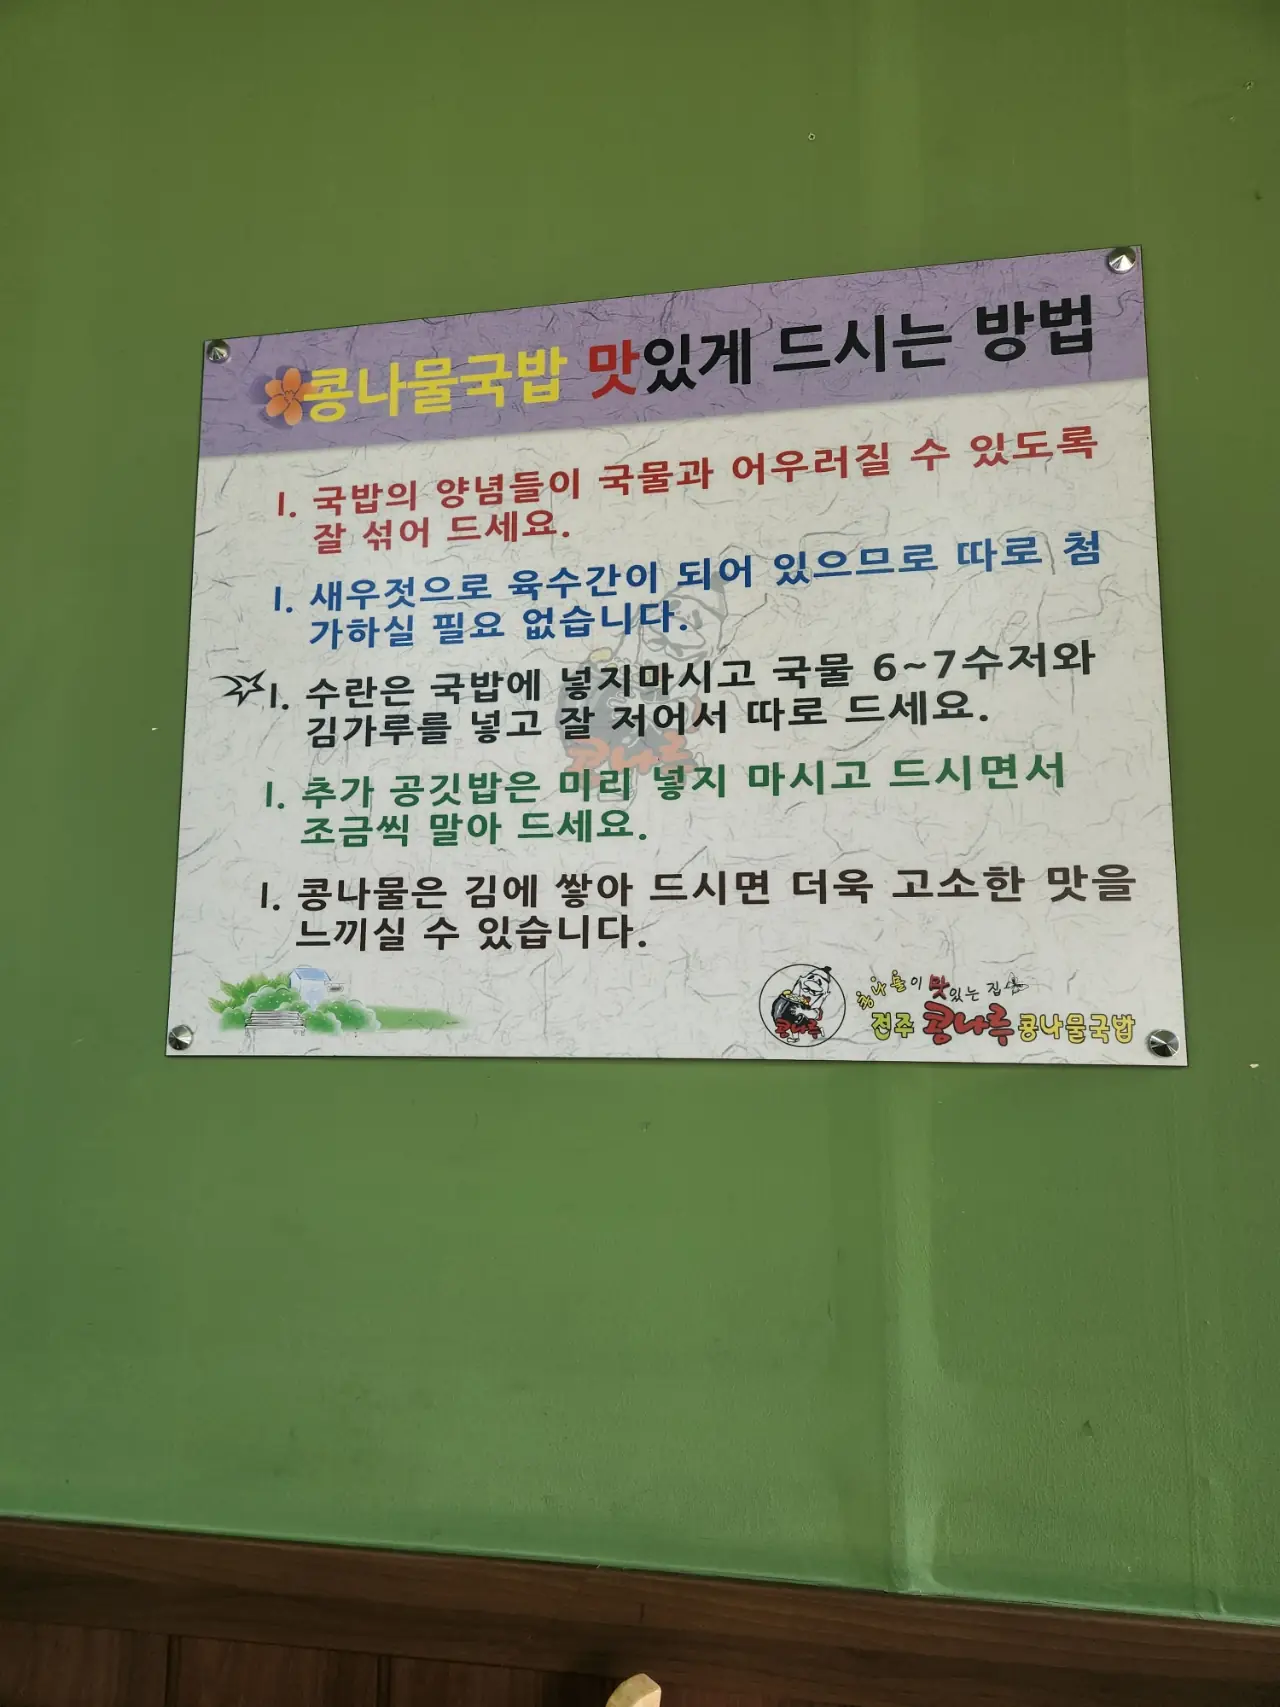 콩나물국밥 맛있게 드시는 방법
1. 국밥의 양념들이 국물과 어우러질 수 있도록
잘 섞어 드세요.
1. 새우젓으로 육수간이 되어 있으므로 따로 첨
가하실 필요 없습니다.
1. 수란은 국밥에 넣지마시고 국물 6~7수저와
김가루를 넣고 잘 저어서 따로 드세요.
1. 추가 공깃밥은 미리 넣지 마시고 드시면서
조금씩 말아 드세요.
1. 콩나물은 김에 쌓아 드시면 더욱 고소한 맛을
느끼실 수 있습니다.
콩나루
콩나물이 맛있는 집
콩나루
전주 콩나루 콩나물국밥